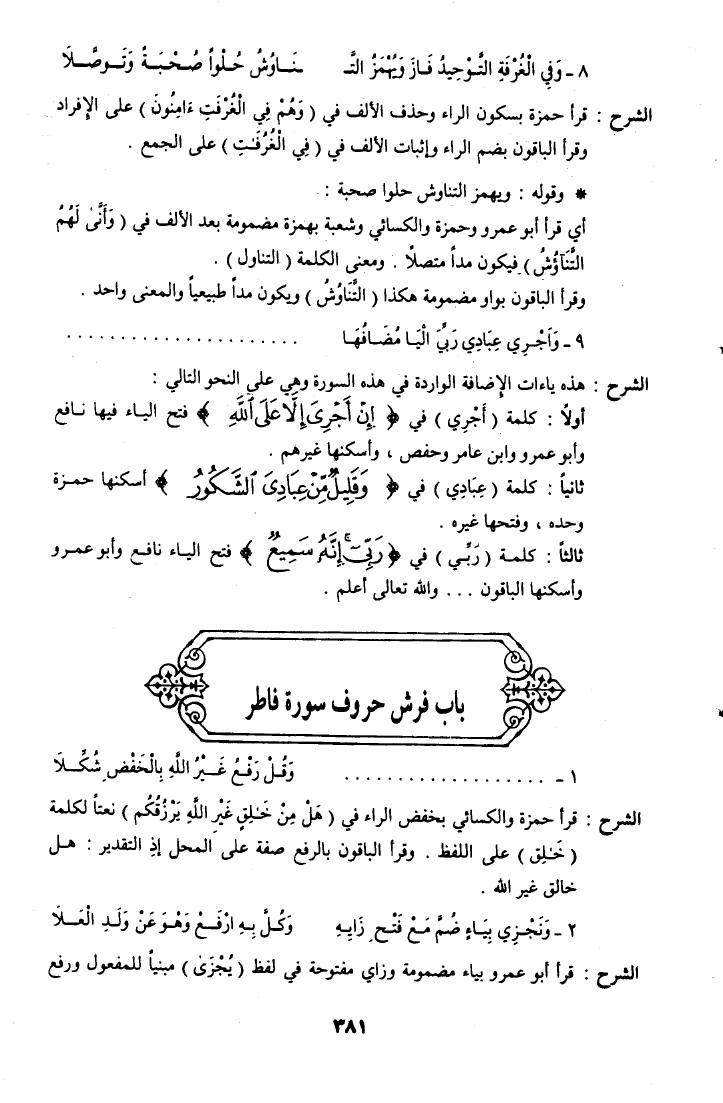 ٨ - وَفِي الْغُرْفَةِ التَّوْحِيدُ فَازَ وَيُهْمَزُ التَّـ ـنَاوُشُ حُلْواً صُحْبَةٌ وَتَوصَّلَا
الشرح : قرأ حمزة بسكون الراء وحذف الألف في ( وَهُمْ فِي الْغُرْفَتِ ءَامِنُونَ ) على الإفراد
وقرأ الباقون بضم الراء وإثبات الألف في ( فِي الْغُرُفَٰتِ ) على الجمع .
* وقوله : ويهمز التناوش حلوا صحبة :
أي قرأ أبو عمرو وحمزة والكسائي وشعبة بهمزة مضمومة بعد الألف في ( وَأَنَّىٰ لَهُمُ
التَّنَاؤُشُ ) فيكون مداً متصلًا . ومعنى الكلمة ( التناول ) .
وقرأ الباقون بواو مضمومة هكذا ( التَّنَاوُشُ ) ويكون مداً طبيعياً والمعنى واحد .
٩ - وَأَجْرِي عِبَادِي رَبِّيَ الْيَا مُضَافُهَا . . . . . . . . . . . . . . . . . . . .
الشرح : هذه ياءات الإضافة الواردة في هذه السورة وهي على النحو التالي :
أولاً : كلمة ( أَجْرِي ) في ﴿ إِنْ أَجْرِىَ إِلَّا عَلَى ٱللَّهِ ﴾ فتح الياء فيها نافع
وأبو عمرو وابن عامر وحفص ، وأسكنها غيرهم .
ثانياً : كلمة ( عِبَادِي ) في ﴿ وَقَلِيلٌ مِّنْ عِبَادِىَ ٱلشَّكُورُ ﴾ أسكنها حمزة
وحده ، وفتحها غيره .
ثالثاً : كلمة ( رَبِّي ) في ﴿ رَبِّىٓ إِنَّهُۥ سَمِيعٌ ﴾ فتح الياء نافع وأبو عمرو
وأسكنها الباقون ... والله تعالى أعلم .
باب فرش حروف سورة فاطر
١ - . . . . . . . . . . . . . . . . . . . وَقُلْ رَفْعُ غَيْرُ اللَّهِ بِالْخَفْضِ شُكِّلَا
الشرح : قرأ حمزة والكسائي بخفض الراء في ( هَلْ مِنْ خَٰلِقٍ غَيْرِ اللَّهِ يَرْزُقُكُم ) نعتاً لكلمة
( خَٰلِقٍ ) على اللفظ . وقرأ الباقون بالرفع صفة على المحل إذِ التقدير : هل
خالق غير الله .
٢ - وَنَجْزِي بِيَاءٍ ضُمَّ مَعْ فَتْحِ زَايِهِ وَكُلَّ بِهِ ارْفَعْ وَهْوَ عَنْ وَلَدِ الْعَلَا
الشرح : قرأ أبو عمرو بياء مضمومة وزاي مفتوحة في لفظ ( يُجْزَىٰ ) مبنياً للمفعول ورفع
٣٨١